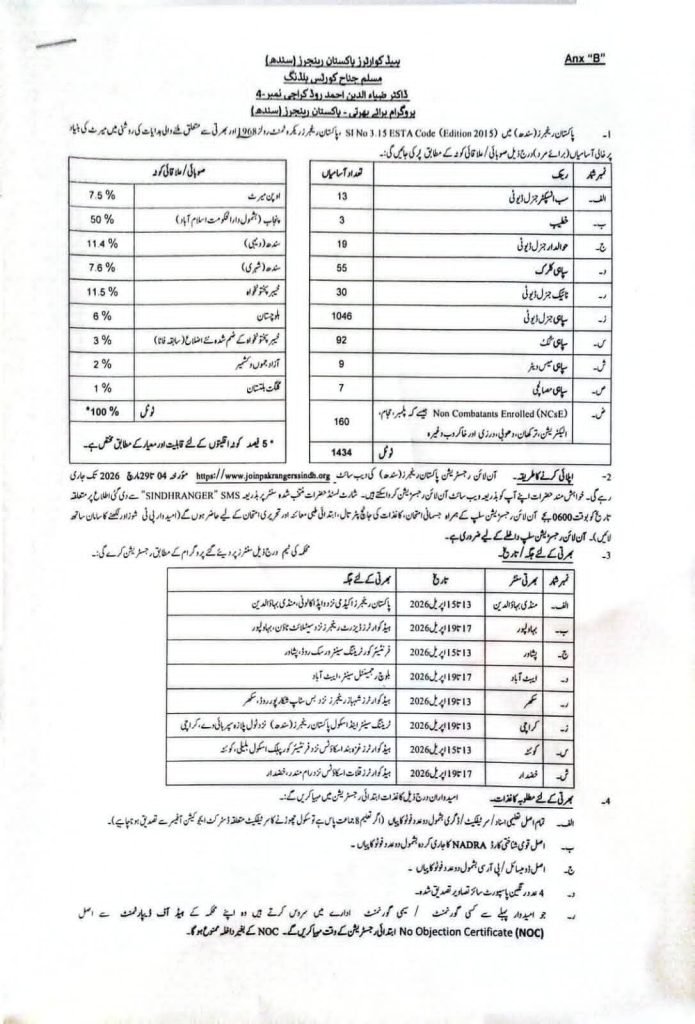 Anx "B"
ہیڈ کوارٹرز پاکستان رینجرز (سندھ)
مسلم جناح کورٹس بلڈنگ
ڈاکٹر ضیاء الدین احمد روڈ کراچی نمبر-4
پروگرام برائے بھرتی - پاکستان رینجرز (سندھ)
1- پاکستان رینجرز (سندھ) میں SI No 3.15 ESTA Code (Edition 2015)، پاکستان رینجرز ریکروٹمنٹ رولز 1968 اور بھرتی سے متعلق ملنے والی ہدایات کی روشنی میں میرٹ کی بنیاد
پر خالی آسامیاں (برائے مرد) درج ذیل صوبائی / علاقائی کوٹہ کے مطابق پُر کی جائیں گی:۔
نمبر شمار رینک تعداد آسامیاں
الف۔ سب انسپکٹر جنرل ڈیوٹی 13
ب۔ خطیب 3
ج۔ حوالدار جنرل ڈیوٹی 19
د۔ سپاہی کلرک 55
ر۔ نائیک جنرل ڈیوٹی 30
ز۔ سپاہی جنرل ڈیوٹی 1046
س۔ سپاہی کُک 92
ش۔ سپاہی میس ویٹر 9
ص۔ سپاہی مصالچی 7
ض۔ Non Combatants Enrolled (NCsE) جیسے کہ پلمبر، حجام،
الیکٹریشن، ترکھان، دھوبی، درزی اور خاکروب وغیرہ 160
ٹوٹل 1434
صوبائی / علاقائی کوٹہ
اوپن میرٹ 7.5 %
پنجاب (بشمول دارالحکومت اسلام آباد) 50 %
سندھ (دیہی) 11.4 %
سندھ (شہری) 7.6 %
خیبر پختونخواہ 11.5 %
بلوچستان 6 %
خیبر پختونخواہ کے ضم شدہ نئے اضلاع (سابقہ فاٹا) 3 %
آزاد جموں و کشمیر 2 %
گلگت بلتستان 1 %
ٹوٹل 100 %*
* 5 فیصد کوٹہ اقلیتوں کے لئے قابلیت اور معیار کے مطابق مختص ہے۔
2- اپلائی کرنے کا طریقہ۔ آن لائن رجسٹریشن پاکستان رینجرز (سندھ) کی ویب سائٹ https://www.joinpakrangerssindh.org مؤرخہ 04 تا 29 مارچ 2026 تک جاری
رہے گی۔ خواہش مند حضرات اپنے آپ کو بذریعہ ویب سائٹ آن لائن رجسٹریشن کرواسکتے ہیں۔ شارٹ لسٹڈ حضرات منتخب شدہ سنٹر پر بذریعہ SMS "SINDHRANGER" سے دی گئی اطلاع پر متعلقہ
تاریخ کو بوقت 0600 بجے آن لائن رجسٹریشن سلپ کے ہمراہ جسمانی امتحان، کاغذات کی جانچ پڑتال، ابتدائی طبی معائنہ اور تحریری امتحان کے لیے حاضر ہوں گے (امیدوار پی ٹی شوز اور لکھنے کا سامان ساتھ
لائیں)۔ آن لائن رجسٹریشن سلپ داخلے کے لیے ضروری ہے۔
3- بھرتی کے لئے جگہ / تاریخ۔ محکمہ کی ٹیم درج ذیل سنٹرز پر دیئے گئے پروگرام کے مطابق رجسٹریشن کرے گی:۔
نمبر شمار بھرتی سنٹر تاریخ بھرتی کے لئے جگہ
الف۔ منڈی بہاؤالدین 13 تا 15 اپریل 2026 پاکستان رینجرز اکیڈمی نزد واپڈا کالونی، منڈی بہاؤالدین
ب۔ بہاولپور 17 تا 19 اپریل 2026 ہیڈ کوارٹرز ڈیزرٹ رینجرز نزد سیٹلائٹ ٹاؤن، بہاولپور
ج۔ پشاور 13 تا 15 اپریل 2026 فرنٹیئر کور ٹریننگ سینٹر ورسک روڈ، پشاور
د۔ ایبٹ آباد 17 تا 19 اپریل 2026 بلوچ رجمینٹل سینٹر، ایبٹ آباد
ر۔ سکھر 13 تا 19 اپریل 2026 ہیڈ کوارٹرز شہباز رینجرز نزد بس سٹاپ شکارپور روڈ، سکھر
ز۔ کراچی 13 تا 19 اپریل 2026 ٹریننگ سینٹر اینڈ اسکول پاکستان رینجرز (سندھ) نزد ٹول پلازہ سپر ہائی وے، کراچی
س۔ کوئٹہ 13 تا 15 اپریل 2026 ہیڈ کوارٹرز غزہ بند اسکاؤٹس نزد فرنٹیئر کور پبلک اسکول بلیلی، کوئٹہ
ش۔ خضدار 17 تا 19 اپریل 2026 ہیڈ کوارٹرز قلات اسکاؤٹس نزد رام مندر، خضدار
4- بھرتی کے لئے مطلوبہ کاغذات۔ امیدواران درج ذیل کاغذات ابتدائی رجسٹریشن میں مہیا کریں گے:۔
الف۔ تمام اصل تعلیمی اسناد / سرٹیفکیٹ / ڈگری بشمول دو عدد فوٹو کاپیاں (اگر تعلیم 8 جماعت پاس ہے تو سکول چھوڑنے کا سرٹیفکیٹ متعلقہ ڈسٹرکٹ ایجوکیشن آفیسر سے تصدیق ہونا چاہیے)۔
ب۔ اصل قومی شناختی کارڈ NADRA کا جاری کردہ بشمول دو عدد فوٹو کاپیاں۔
ج۔ اصل ڈومیسائل / پی آر سی بشمول دو عدد فوٹو کاپیاں۔
د۔ 4 عدد رنگین پاسپورٹ سائز تصاویر تصدیق شدہ۔
ر۔ جو امیدوار پہلے سے کسی گورنمنٹ / سیمی گورنمنٹ ادارے میں سروس کرتے ہیں وہ اپنے محکمہ کے ہیڈ آف ڈیپارٹمنٹ سے اصل
No Objection Certificate (NOC) ابتدائی رجسٹریشن کے وقت مہیا کریں گے۔ NOC کے بغیر داخلہ ممنوع ہو گا۔